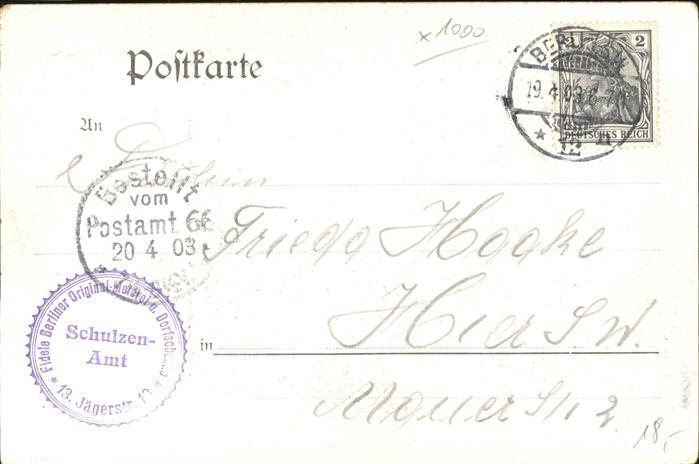 x 1000
Postkarte
2
BERLIN
19.4.03.6-7
12
DEUTSCHES REICH
An
Fräulein
Bestellt
vom
Postamt 66
20 4 03
Frieda Haake
in Hier S.W.
Fidele Berliner Original
Schulzen-
Amt
* 13. Jägerstr. 13 *
18,-